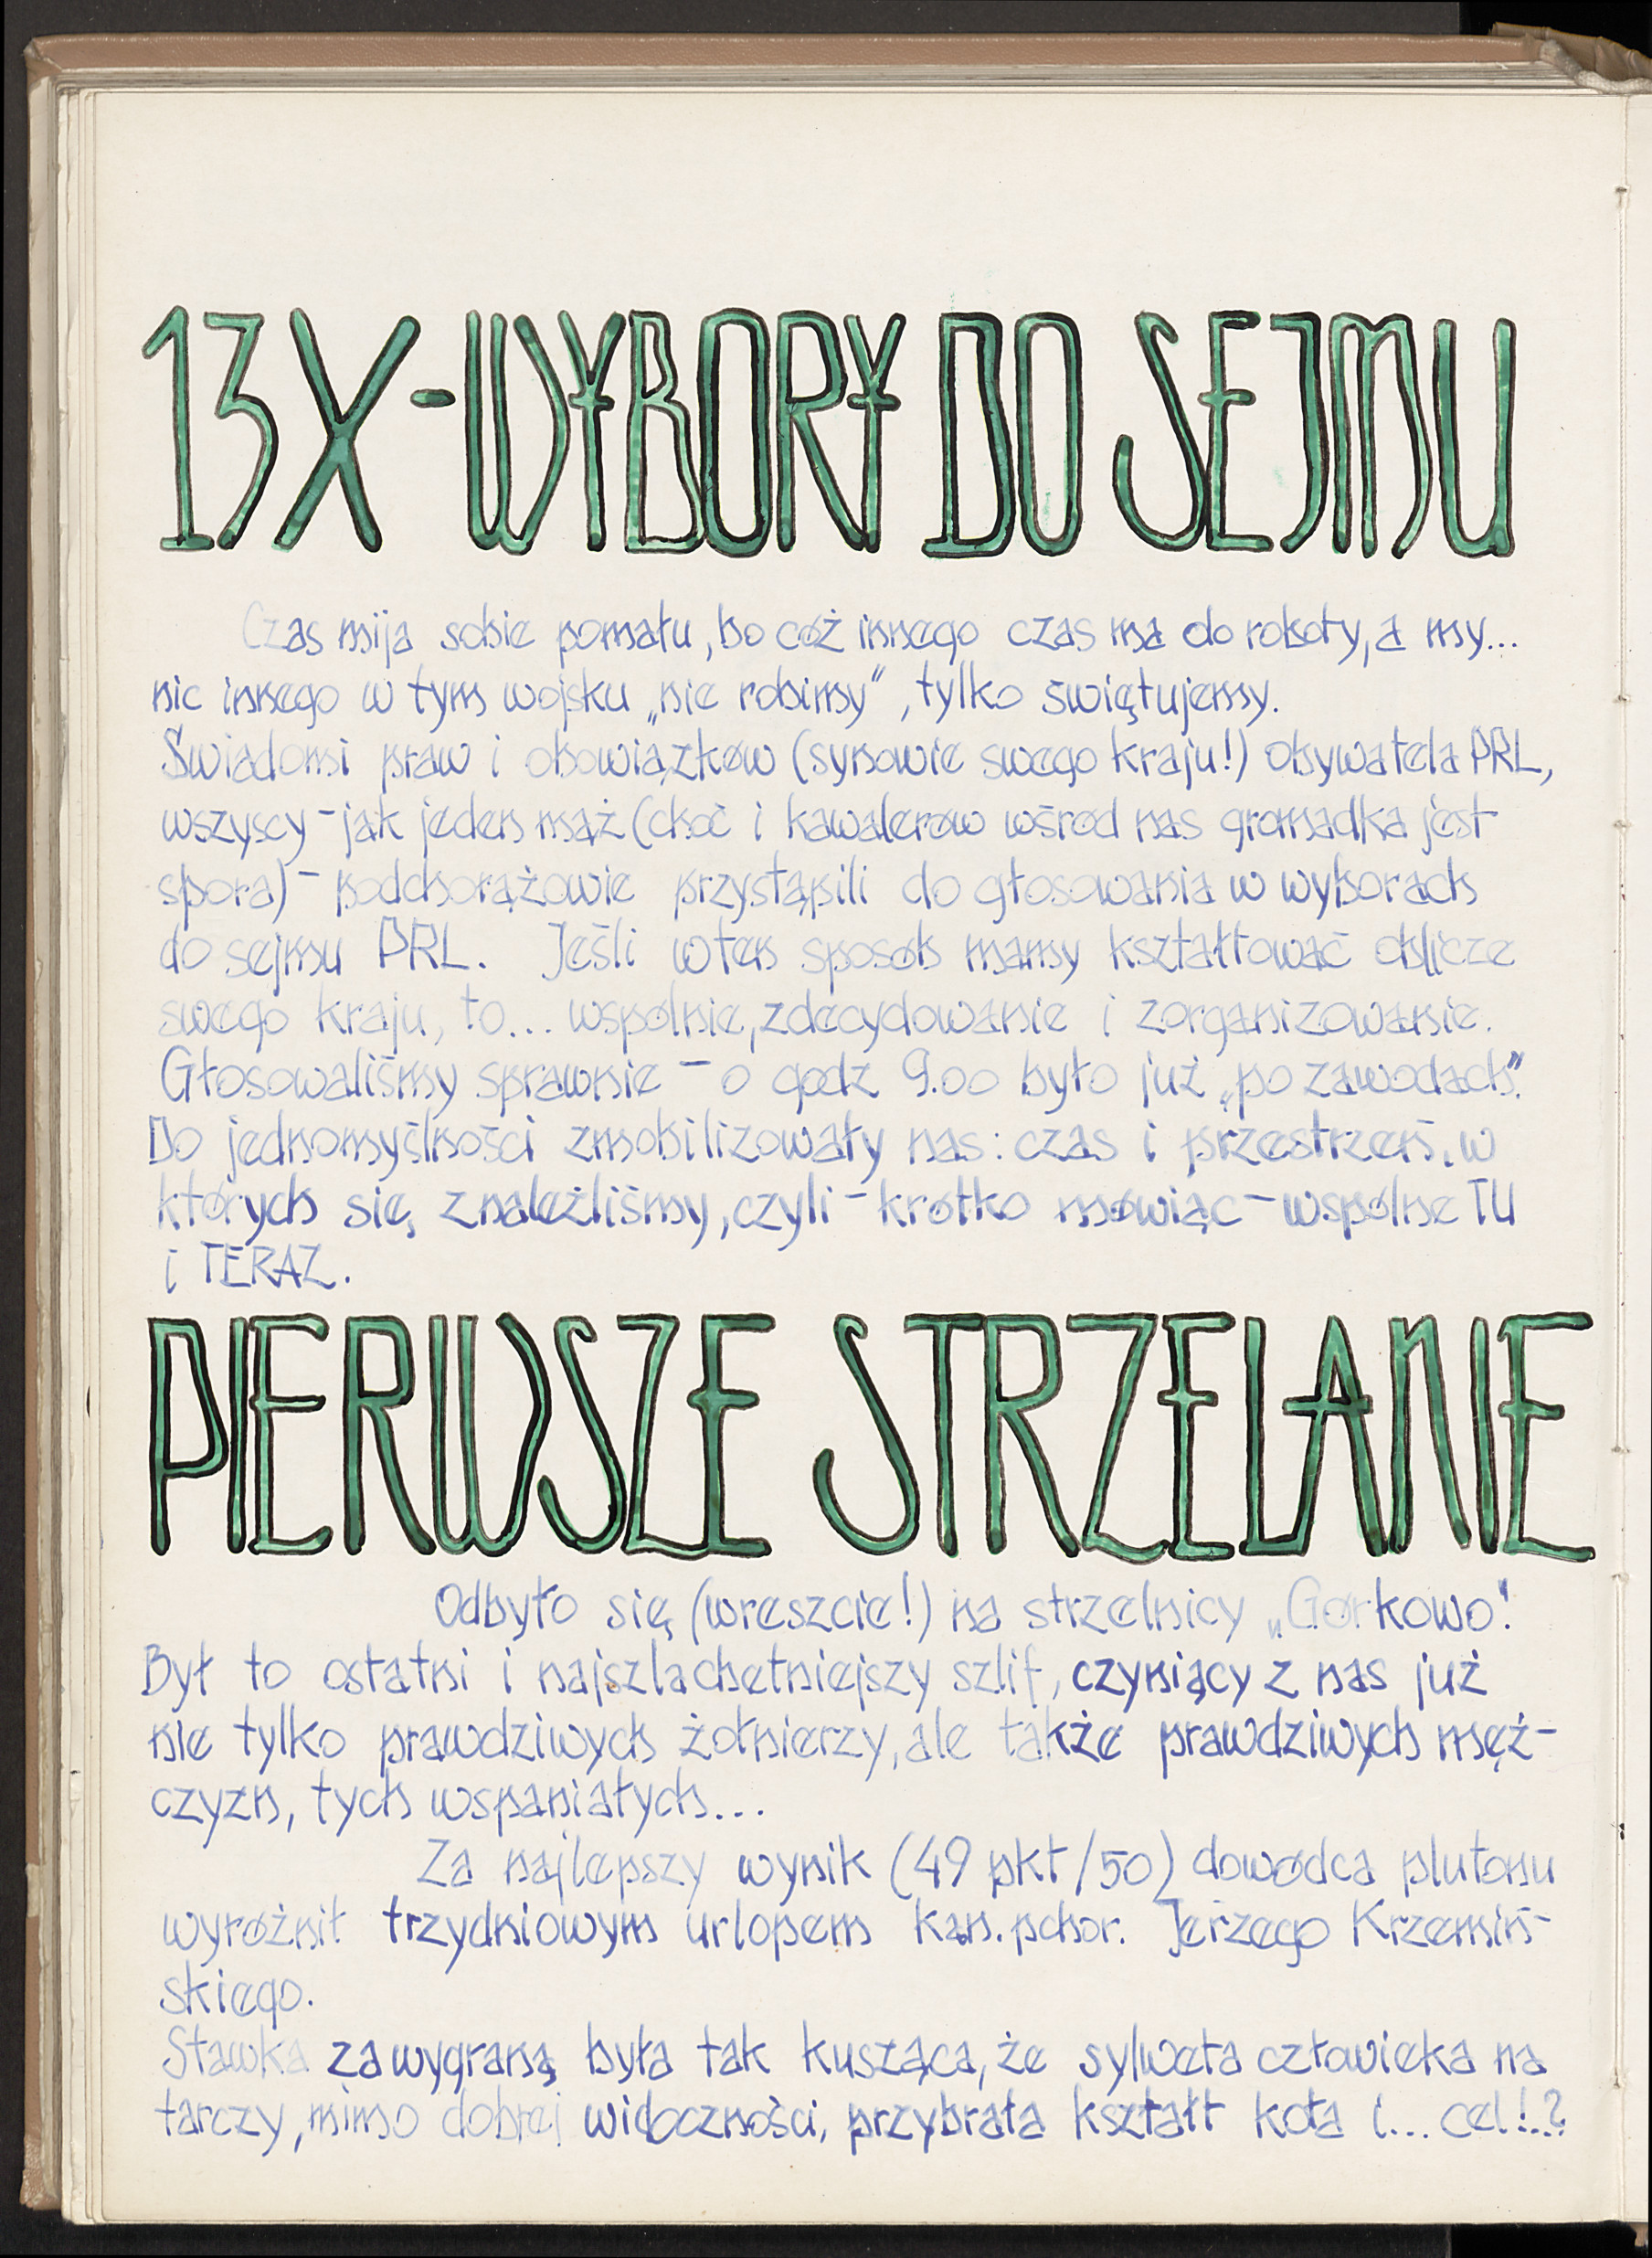 13 X - WYBORY DO SEJMU
Czas mija sobie pomału, bo cóż innego czas ma do roboty, a my...
nic innego w tym wojsku „nie robimy”, tylko świętujemy.
Świadomi praw i obowiązków (synowie swego kraju!) Obywatela PRL,
wszyscy - jak jeden mąż (choć i kawalerów wśród nas gromadka jest
spora) - podchorążowie przystąpili do głosowania w wyborach
do sejmu PRL. Jeśli w ten sposób mamy kształtować oblicze
swego kraju, to... wspólnie, zdecydowanie i zorganizowanie.
Głosowaliśmy sprawnie - o godz 9.00 było już „po zawodach”.
Do jednomyślności zmobilizowały nas: czas i przestrzeń, w
których się znaleźliśmy, czyli - krótko mówiąc - wspólne TU
i TERAZ.
PIERWSZE STRZELANIE
Odbyło się (wreszcie!) na strzelnicy „Górkowo”.
Był to ostatni i najszlachetniejszy szlif, czyniący z nas już
nie tylko prawdziwych żołnierzy, ale także prawdziwych męż-
czyzn, tych wspaniałych...
Za najlepszy wynik (49 pkt/50) dowódca plutonu
wyróżnił trzydniowym urlopem kan. pchor. Jerzego Krzemiń-
skiego.
Stawka za wygraną była tak kusząca, że sylweta człowieka na
tarczy, mimo dobrej widoczności, przybrała kształt koła i... cel!..?